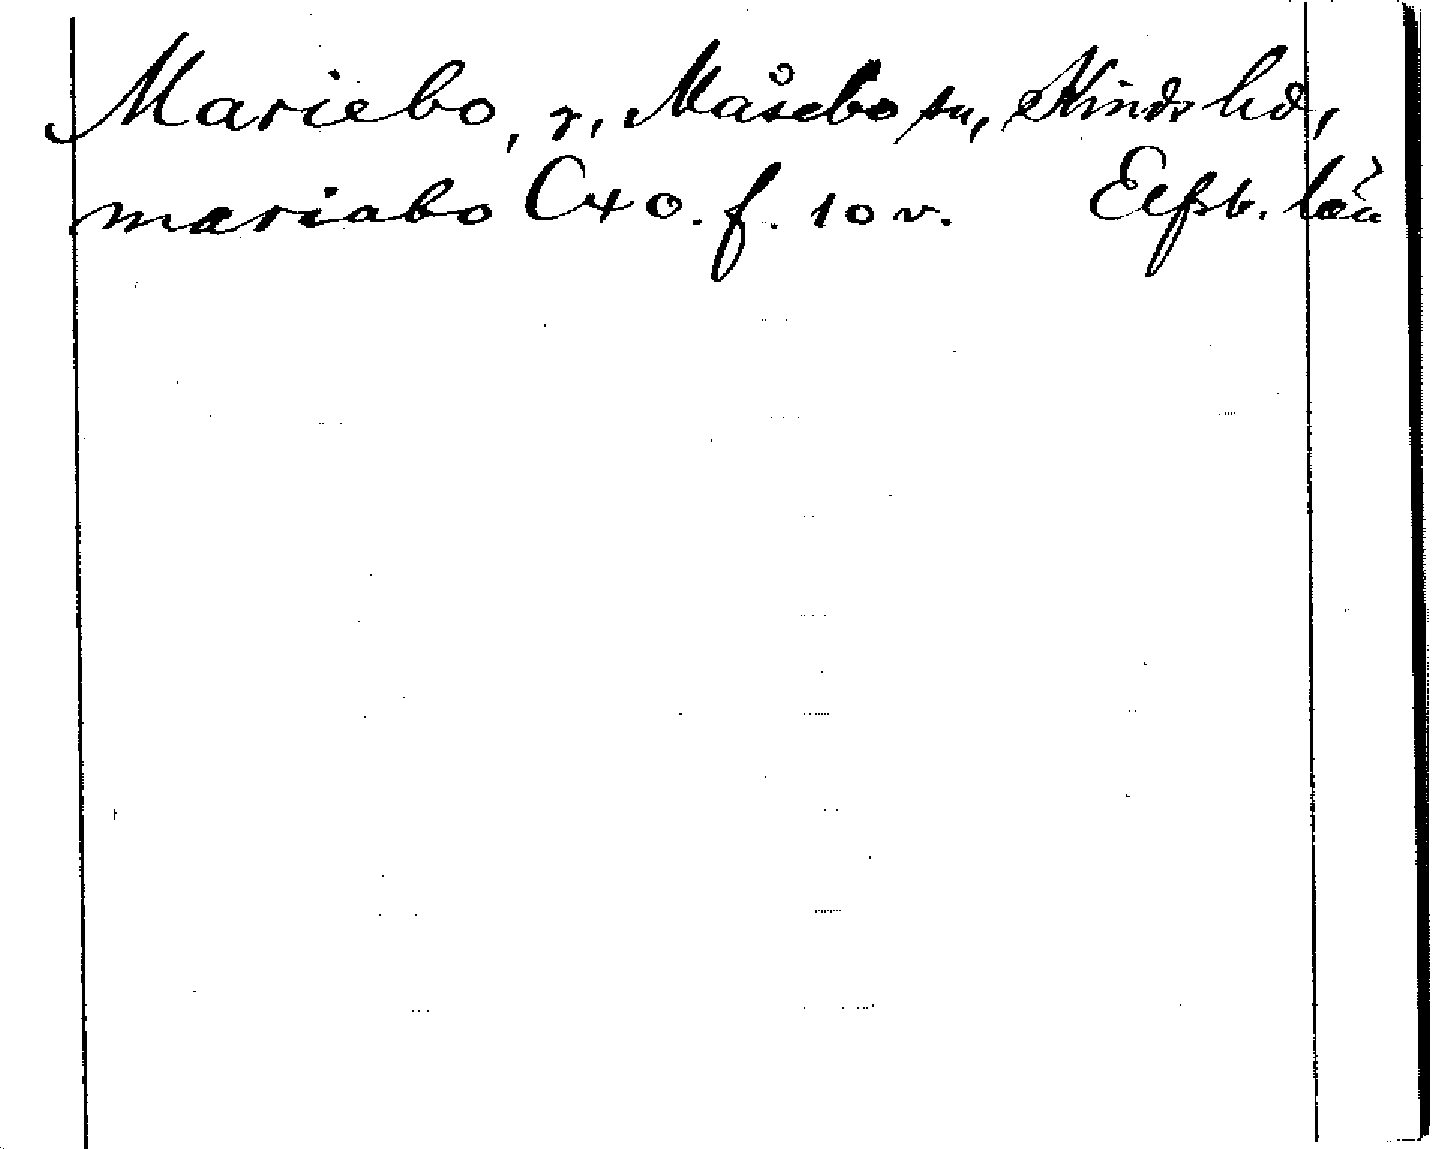 Mariebo, g, Måsebo sn, Kinds hd,
mariabo C40. f. 10 v. Elfsb. län